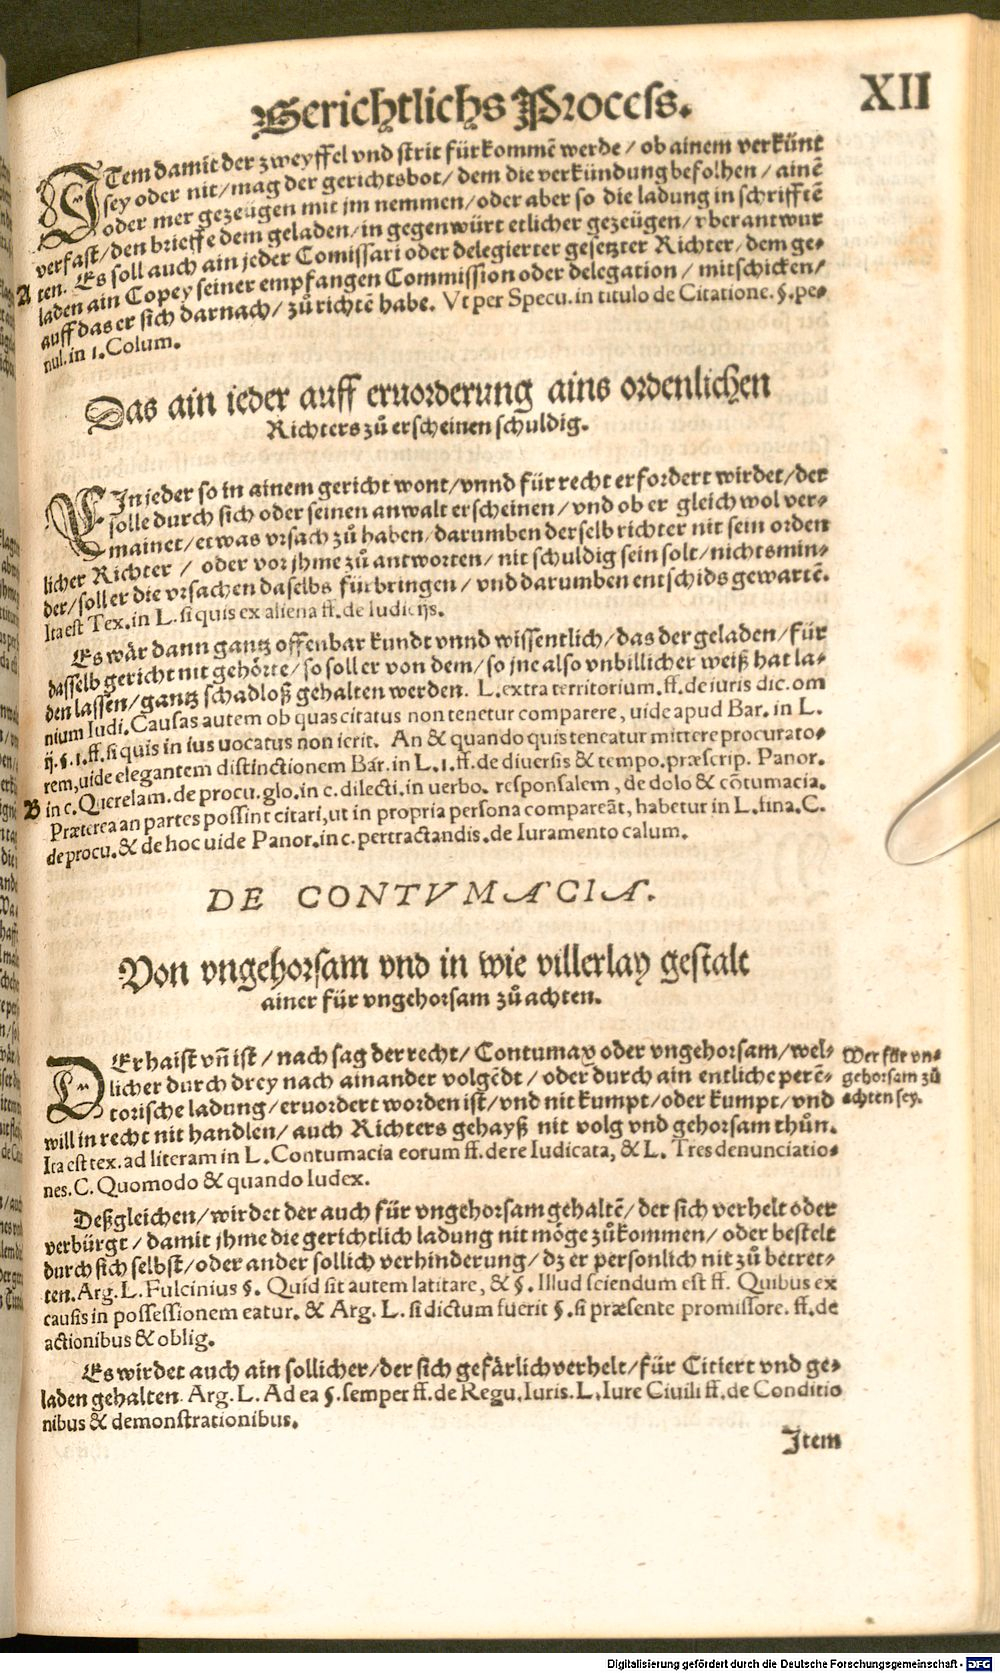 Gerichtlichs Process. XII
ITem damit der zweyffel vnd strit fürkommẽ werde / ob ainem verkünt
sey oder nit / mag der gerichtsbot / dem die verkündung befolhen / ainẽ
oder mer gezeügen mit jm nemmen / oder aber so die ladung in schrifftẽ
verfast / den brieffe dem geladen / in gegenwürt etlicher gezeügen / vberantwur
A ten. Es soll auch ain jeder Comissari oder delegierter gesetzter Richter / dem ge-
laden ain Copey seiner empfangen Commission oder delegation / mitschicken /
auff das er sich darnach / zů richtẽ habe. Vt per Specu. in titulo de Citatione. §. pe-
nul. in 1. Colum.
Das ain ieder auff eruorderung ains ordenlichen
Richters zů erscheinen schuldig.
EIn jeder so in ainem gericht wont / vnnd für recht erfordert wirdet / der
solle durch sich oder seinen anwalt erscheinen / vnd ob er gleich wol ver-
mainet / etwas vrsach zů haben / darumben derselb richter nit sein orden
licher Richter / oder vor jhme zů antworten / nit schuldig sein solt / nichtsmin-
der / soll er die vrsachen daselbs fürbringen / vnd darumben entschids gewartẽ.
Ita est Tex. in L. si quis ex aliena ff. de Iudicijs.
Es wär dann gantz offenbar kundt vnnd wissentlich / das der geladen / für
dasselb gericht nit gehörte / so soll er von dem / so jne also vnbillicher weiß hat la-
den lassen / gantz schadloß gehalten werden. L. extra territorium. ff. de iuris dic. om
nium Iudi. Causas autem ob quas citatus non tenetur comparere, uide apud Bar. in L.
ij. §. 1. ff. si quis in ius uocatus non ierit. An & quando quis teneatur mittere procurato-
rem, uide elegantem distinctionem Bar. in L. 1. ff. de diuersis & tempo. præscrip. Panor.
B in c. Querelam. de procu. glo. in c. dilecti. in uerbo. responsalem, de dolo & cõtumacia.
Præterea an partes possint citari, ut in propria persona compareãt, habetur in L. fina. C.
de procu. & de hoc uide Panor. in c. pertractandis. de Iuramento calum.
DE CONTVMACIA.
Von vngehorsam vnd in wie villerlay gestalt
ainer für vngehorsam zů achten.
DEr haist vñ ist / nach sag der recht / Contumax oder vngehorsam / wel-
licher durch drey nach ainander volgẽdt / oder durch ain entliche perẽ-
torische ladung / eruordert worden ist / vnd nit kumpt / oder kumpt / vnd
will in recht nit handlen / auch Richters gehayß nit volg vnd gehorsam thůn.
Ita est tex. ad literam in L. Contumacia eorum ff. de re Iudicata, & L. Tres denunciatio-
nes. C. Quomodo & quando Iudex.
Wer für vn-
gehorsam zů
achten sey.
Deßgleichen / wirdet der auch für vngehorsam gehaltẽ / der sich verhelt oder
verbürgt / damit jhme die gerichtlich ladung nit möge zůkommen / oder bestelt
durch sich selbst / oder ander sollich verhinderung / dz er personlich nit zů betret-
ten. Arg. L. Fulcinius §. Quid sit autem latitare, & §. Illud sciendum est ff. Quibus ex
causis in possessionem eatur. & Arg. L. si dictum fuerit §. si præsente promissore. ff. de
actionibus & oblig.
Es wirdet auch ain sollicher / der sich gefärlich verhelt / für Citiert vnd ge-
laden gehalten. Arg. L. Ad ea §. semper ff. de Regu. Iuris. L. Iure Ciuili ff. de Conditio
nibus & demonstrationibus.
Item
Digitalisierung gefördert durch die Deutsche Forschungsgemeinschaft - DFG